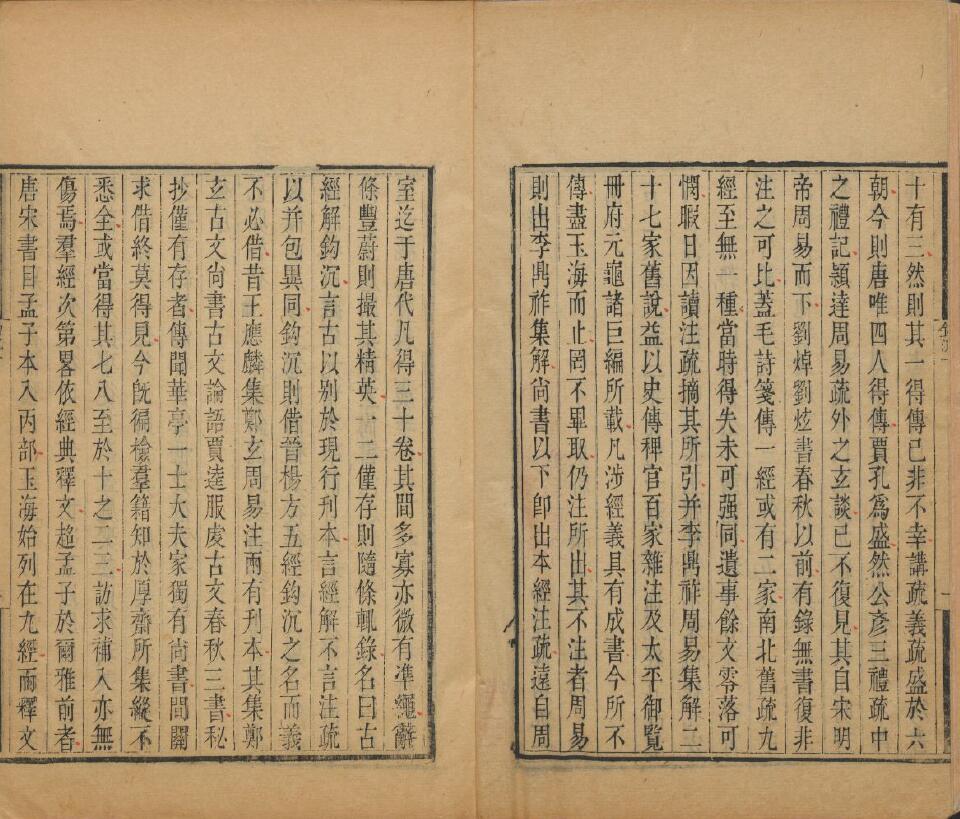 十有三然則其一得傳已非不幸講疏義疏盛於六
朝今則唐唯四人得傳賈孔爲盛然公彥三禮疏中
之禮記穎達周易疏外之玄談已不復見其自宋明
帝周易而下劉焯劉炫書春秋以前有錄無書復非
注之可比蓋毛詩箋傳一經或有二家南北舊疏九
經至無一種當時得失未可强同遺事餘文零落可
憫暇日因讀注疏摘其所引并李鼎祚周易集解二
十七家舊說益以史傳稗官百家雜注及太平御覽
冊府元龜諸巨編所載凡涉經義具有成書今所不
傳盡玉海而止罔不畢取仍注所出其不注者周易
則出李鼎祚集解尚書以下卽出本經注疏遠自周
室迄于唐代凡得三十卷其間多寡亦微有準繩辭
條豐蔚則撮其精英一二僅存則隨條輒錄名曰古
經解鈎沉言古以别於現行刊本言經解不言注疏
以并包異同鈎沉則借晉楊方五經鈎沉之名而義
不必借昔王應麟集鄭玄周易注雨有刊本其集鄭
玄古文尚書古文論語賈逵服虔古文春秋三書秘
抄僅有存者傳聞華亭一士大夫家獨有尚書間關
求借終莫得見今旣徧檢羣籍知於厚齋所集縱不
悉全或當得其七八至於十之二三訪求補入亦無
傷焉羣經次第畧依經典釋文趂孟子於爾雅前者
唐宋書目孟子本入丙部玉海始列在九經而釋文